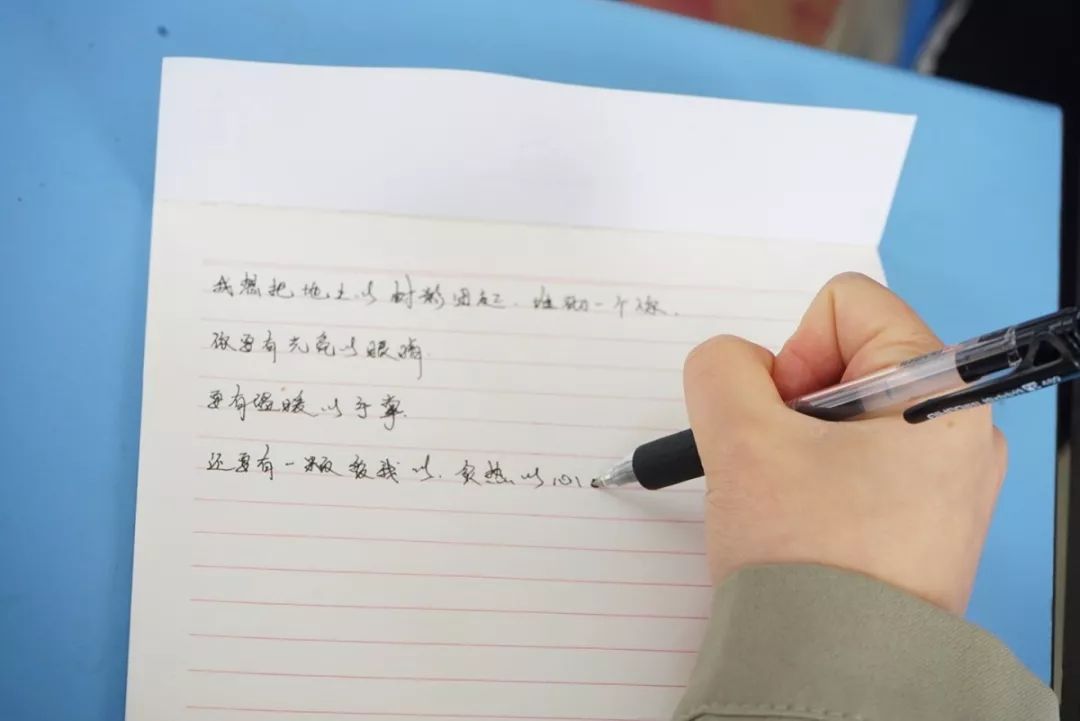 我想把地上的树影团起.堆砌一个你.
你要有光亮的眼睛.
要有温暖的手掌.
还要有一颗爱我的.炙热的心